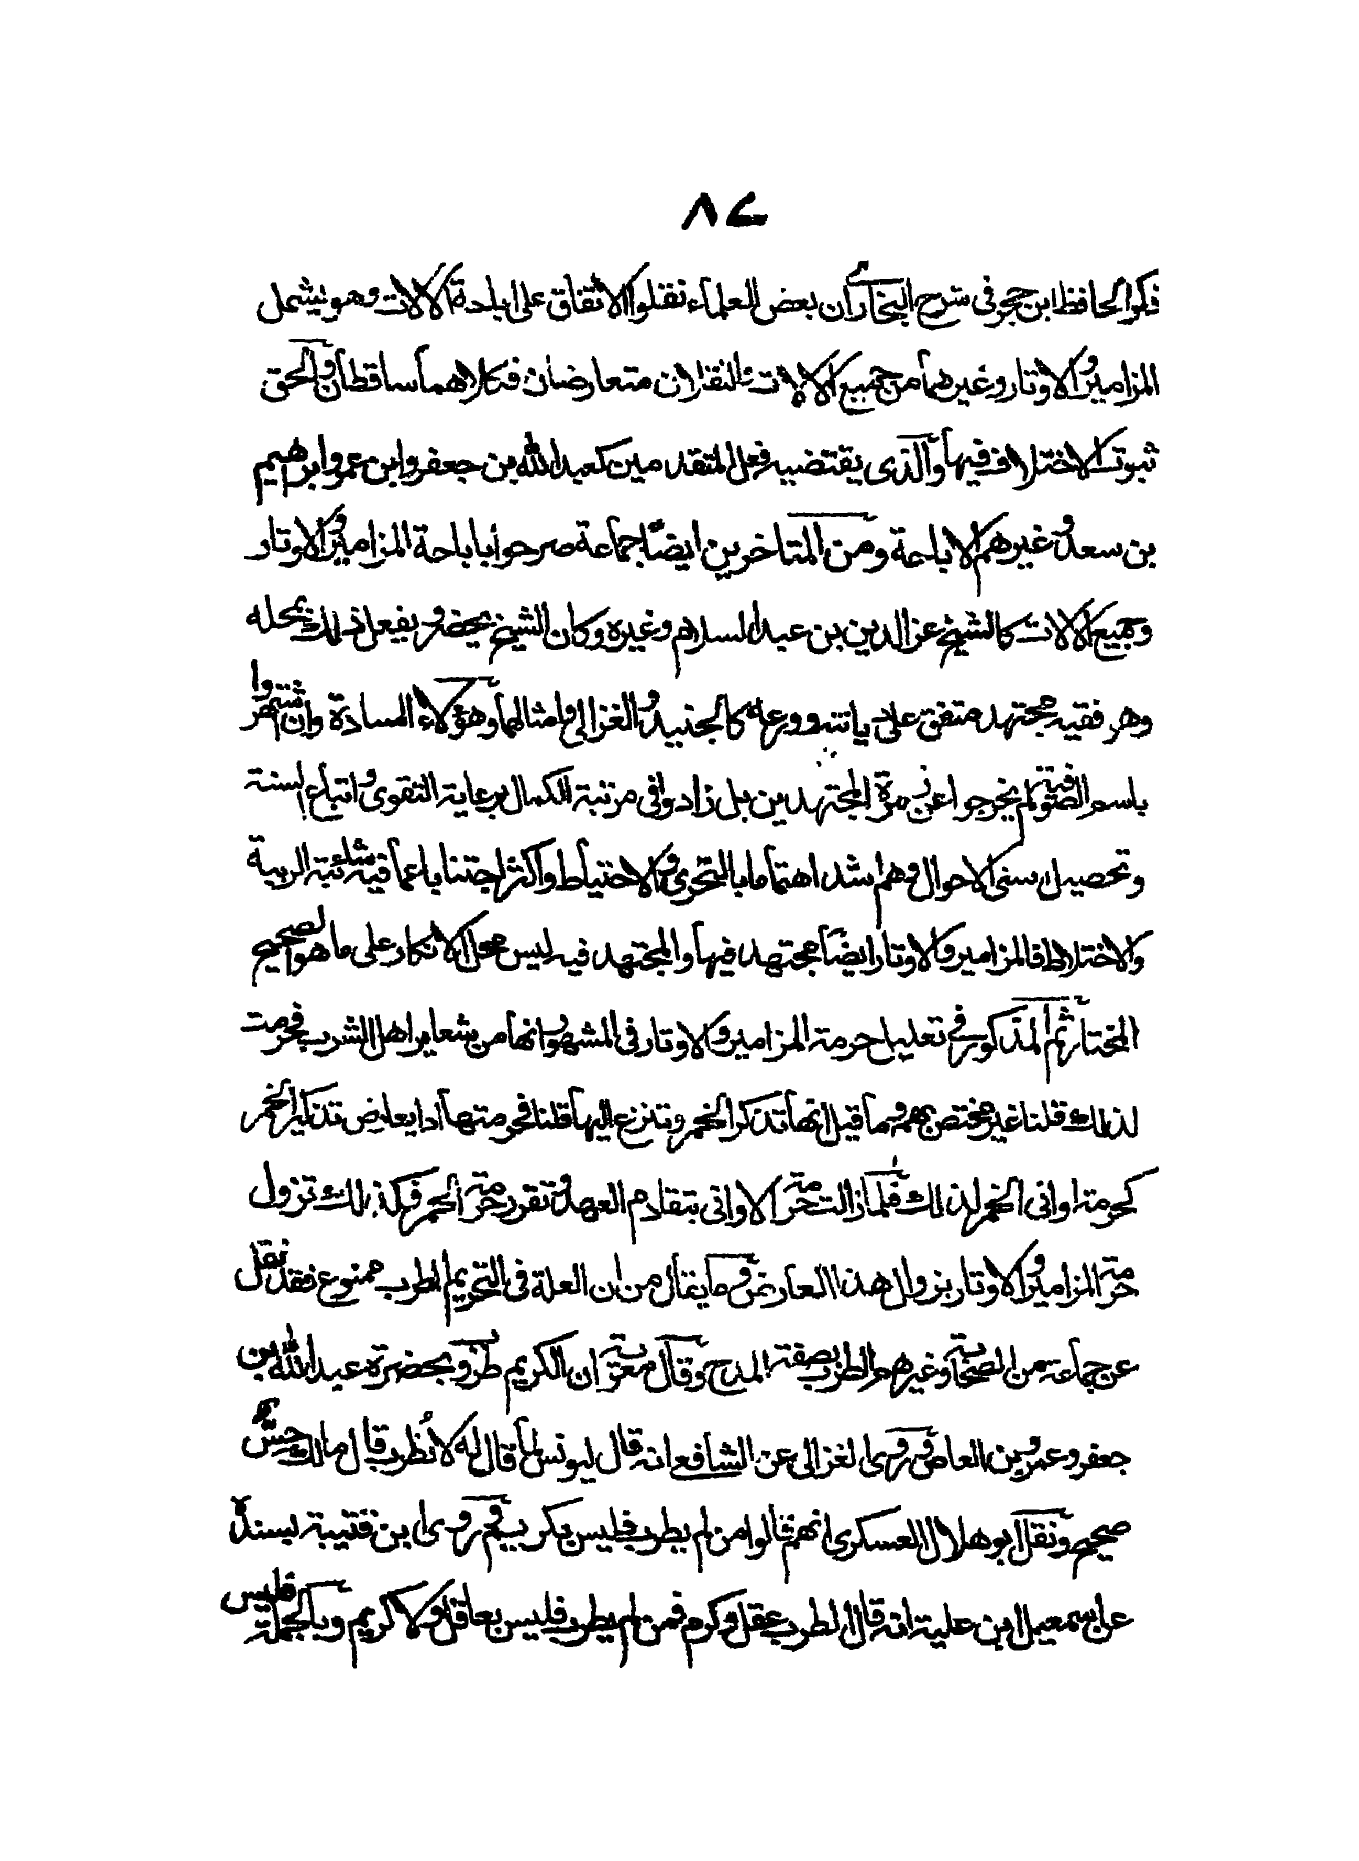 ٨٤
ذكر الحافظ ابن حجر فى شرح البخارى ان بعض العلماء نقلوا الاتفاق على اباحة الالات وهو يشمل
المزامير والاوتار وغيرهما من جميع الالات فالنقلان متعارضان فكلاهما ساقطان والحق
ثبوت الاختلاف فيها والذى يقتضيه فعل المتقدمين كعبد الله بن جعفر وابن عمر وابرهيم
بن سعد وغيرهم الاباحة ومن المتاخرين ايضًا جماعة صرحوا باباحة المزامير والاوتار
وجميع الالات كالشيخ عز الدين بن عبد السلام وغيره وكان الشيخ يحضر ويفعل ذلك بمحله
وهو فقيه مجتهد متفق على ديانته وورعه كالجنيد والغزالى وامثالهما وهؤلاء السادة وان اشتهروا
باسم الصوفية لم يخرجوا عن زمرة المجتهدين بل زادوا فى مرتبة الكمال برعاية التقوى واتباع السنة
وتحصيل سنى الاحوال وهم اشد اهتماما بالتحرى والاحتياط واكثر اجتنابا عما فيه شائبة الريبة
والاختلاط فالمزامير والاوتار ايضًا مجتهد فيها والمجتهد فيه ليس محل الانكار على ما هو الصحيح
المختار ثم المذكور فى تعليل حرمة المزامير والاوتار فى المشهور انها من شعاير اهل الشرب فحرمت
لذلك قلنا غير مختص بهم وما قيل انها تذكر الخمر وتنزع اليها قلنا فحرمتها اذا يعارض تذكير الخمر
كحرمة اوانى الخمر لذلك فلما زالت حرمة الاوانى بتقادم العهد وتقرر حرمة الخمر فكذلك تزول
حرمة المزامير والاوتار بزوال هذا العارض وما يقال من ان العلة فى التحريم الطرب ممنوع فقد نقل
عن جماعة من الصحابة وغيرهم الطرب بصفة المدح وقال معوية ان الكريم طروب بحضرة عبد الله بن
جعفر وعمرو بن العاص وروى الغزالى عن الشافعى انه قال ليونس لما قال له لا نُطرب قال مالك حسٌّ
صحيح ونقل ابو هلال العسكرى انهم قالوا من لم يطرب فليس بكريم وروى ابن قتيبة بسنده
عن اسمعيل ابن علية انه قال الطرب عقل وكرم فمن لم يطرب فليس بعاقل ولا كريم وبالجملة فليس